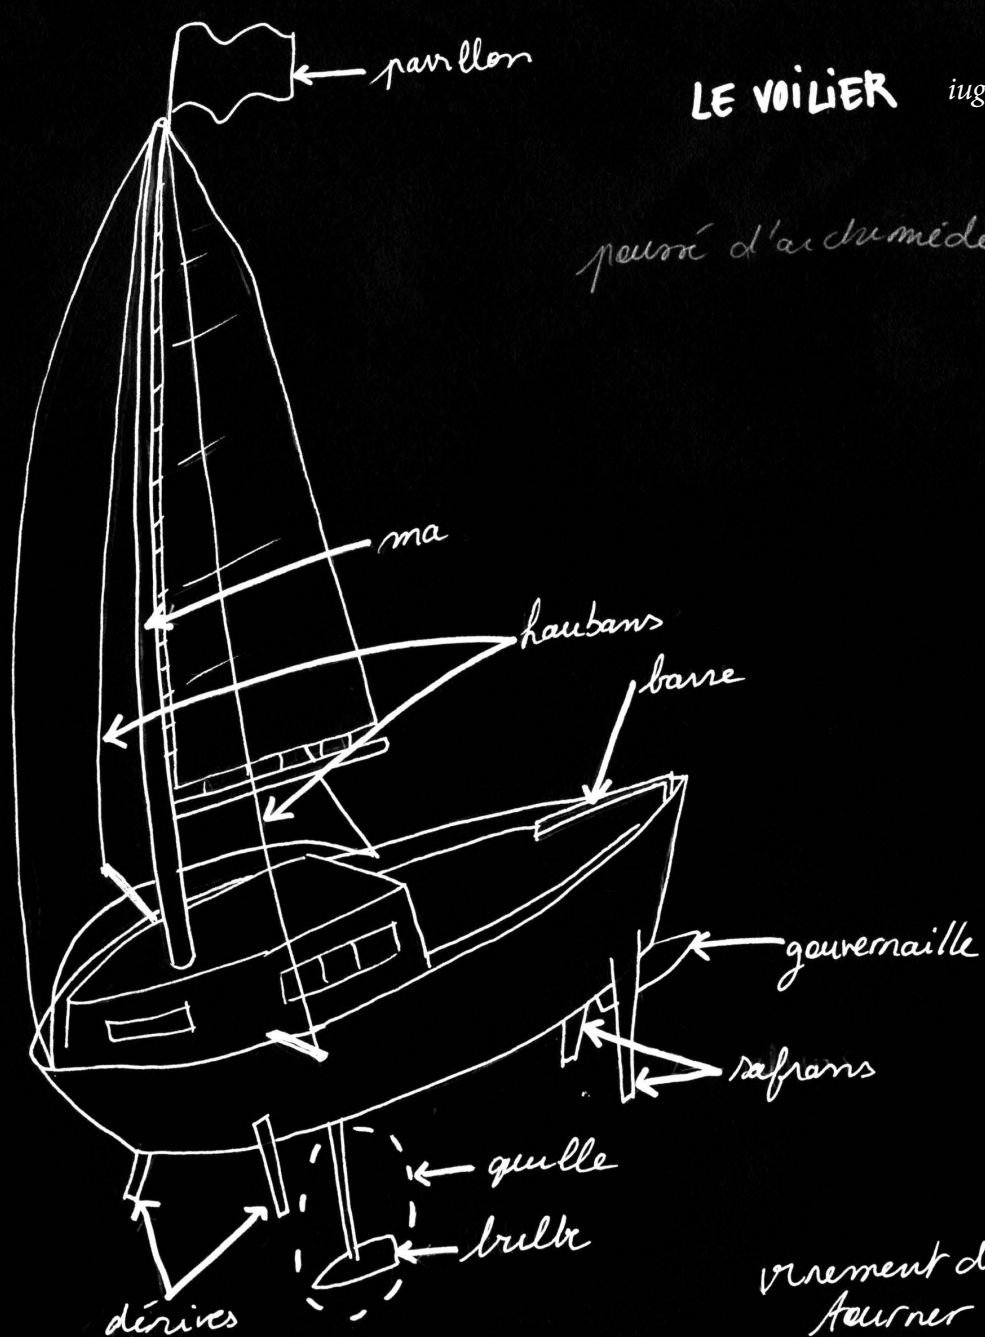 pavillon
LE VOILIER
iug
poussé d'archimède
ma
haubans
barre
gouvernaille
safrans
quille
bulbe
virement d
tourner
dérives